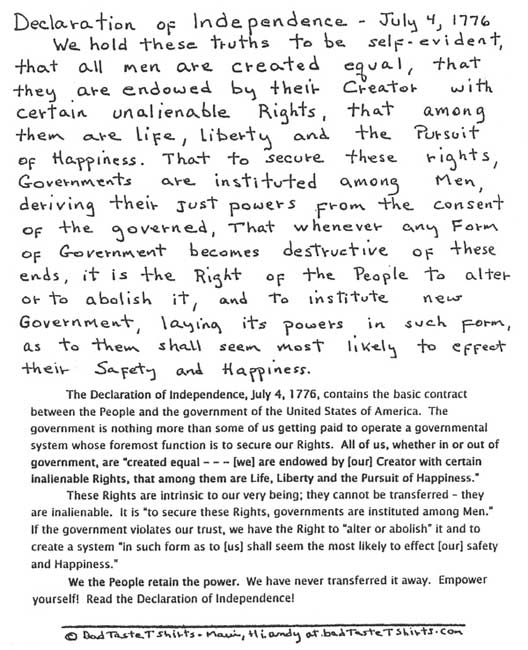 Declaration of Independence - July 4, 1776
We hold these truths to be self-evident,
that all men are created equal, that
they are endowed by their Creator with
certain unalienable Rights, that among
them are life, liberty and the Pursuit
of Happiness. That to secure these rights,
Governments are instituted among Men,
deriving their just powers from the consent
of the governed, That whenever any Form
of Government becomes destructive of these
ends, it is the Right of the People to alter
or to abolish it, and to institute new
Government, laying its powers in such form,
as to them shall seem most likely to effect
their Safety and Happiness.
The Declaration of Independence, July 4, 1776, contains the basic contract
between the People and the government of the United States of America. The
government is nothing more than some of us getting paid to operate a governmental
system whose foremost function is to secure our Rights. All of us, whether in or out of
government, are "created equal - - - [we] are endowed by [our] Creator with certain
inalienable Rights, that among them are Life, Liberty and the Pursuit of Happiness."
These Rights are intrinsic to our very being; they cannot be transferred - they
are inalienable. It is "to secure these Rights, governments are instituted among Men."
If the government violates our trust, we have the Right to "alter or abolish" it and to
create a system "in such form as to [us] shall seem the most likely to effect [our] safety
and Happiness."
We the People retain the power. We have never transferred it away. Empower
yourself! Read the Declaration of Independence!
© BadTasteTShirts - Maui, HI andy at.badTasteTShirts.com